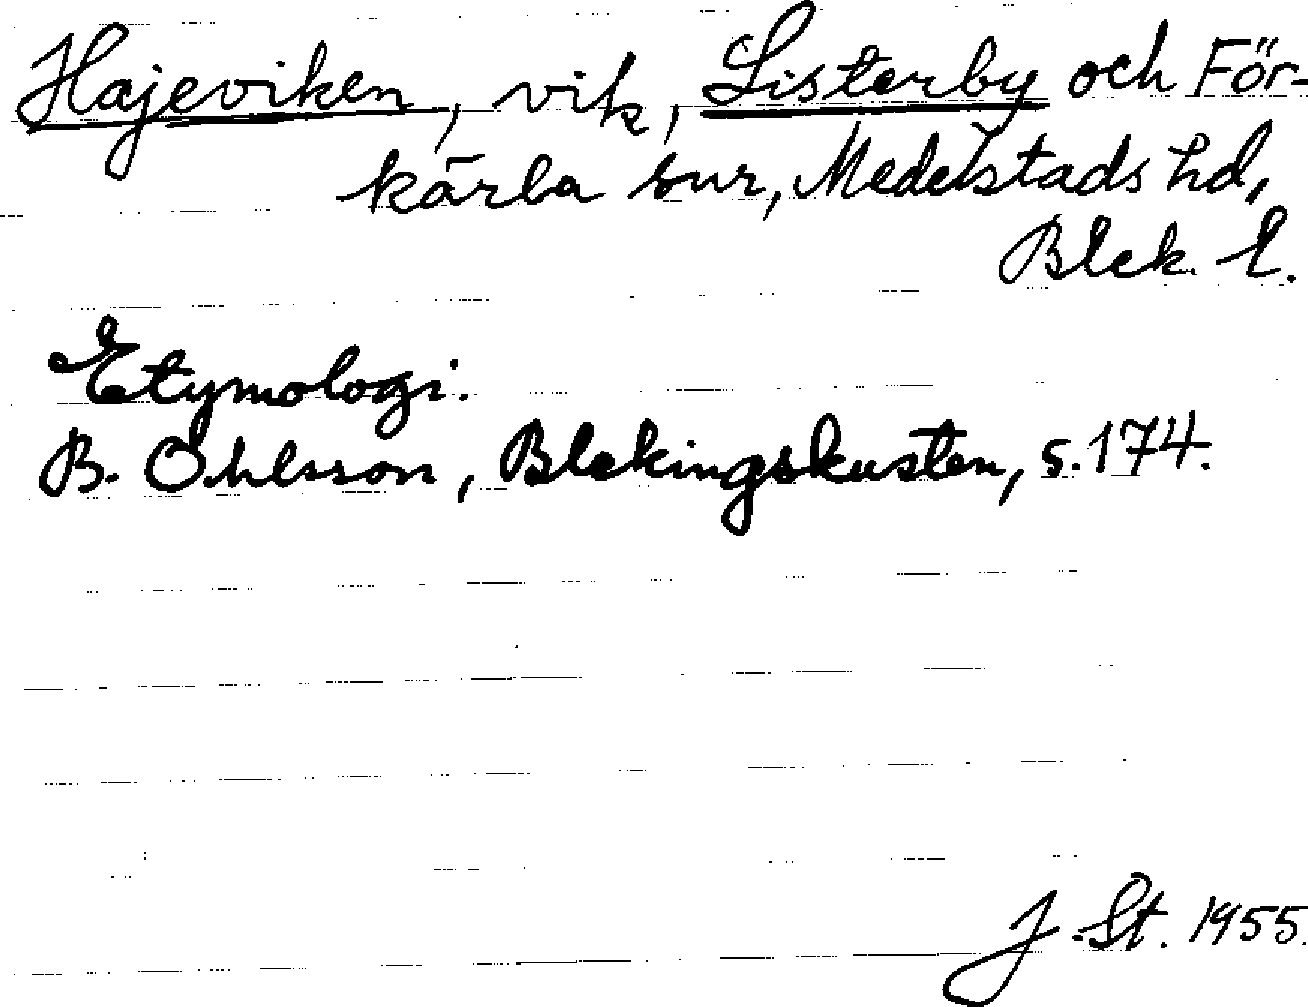 Hajeviken, vik, Listerby och För-
kärla snr, Medelstads hd,
Blek. l.
Etymologi.
B. Ohlsson, Blekingskusten, s. 174.
J. St. 1955.